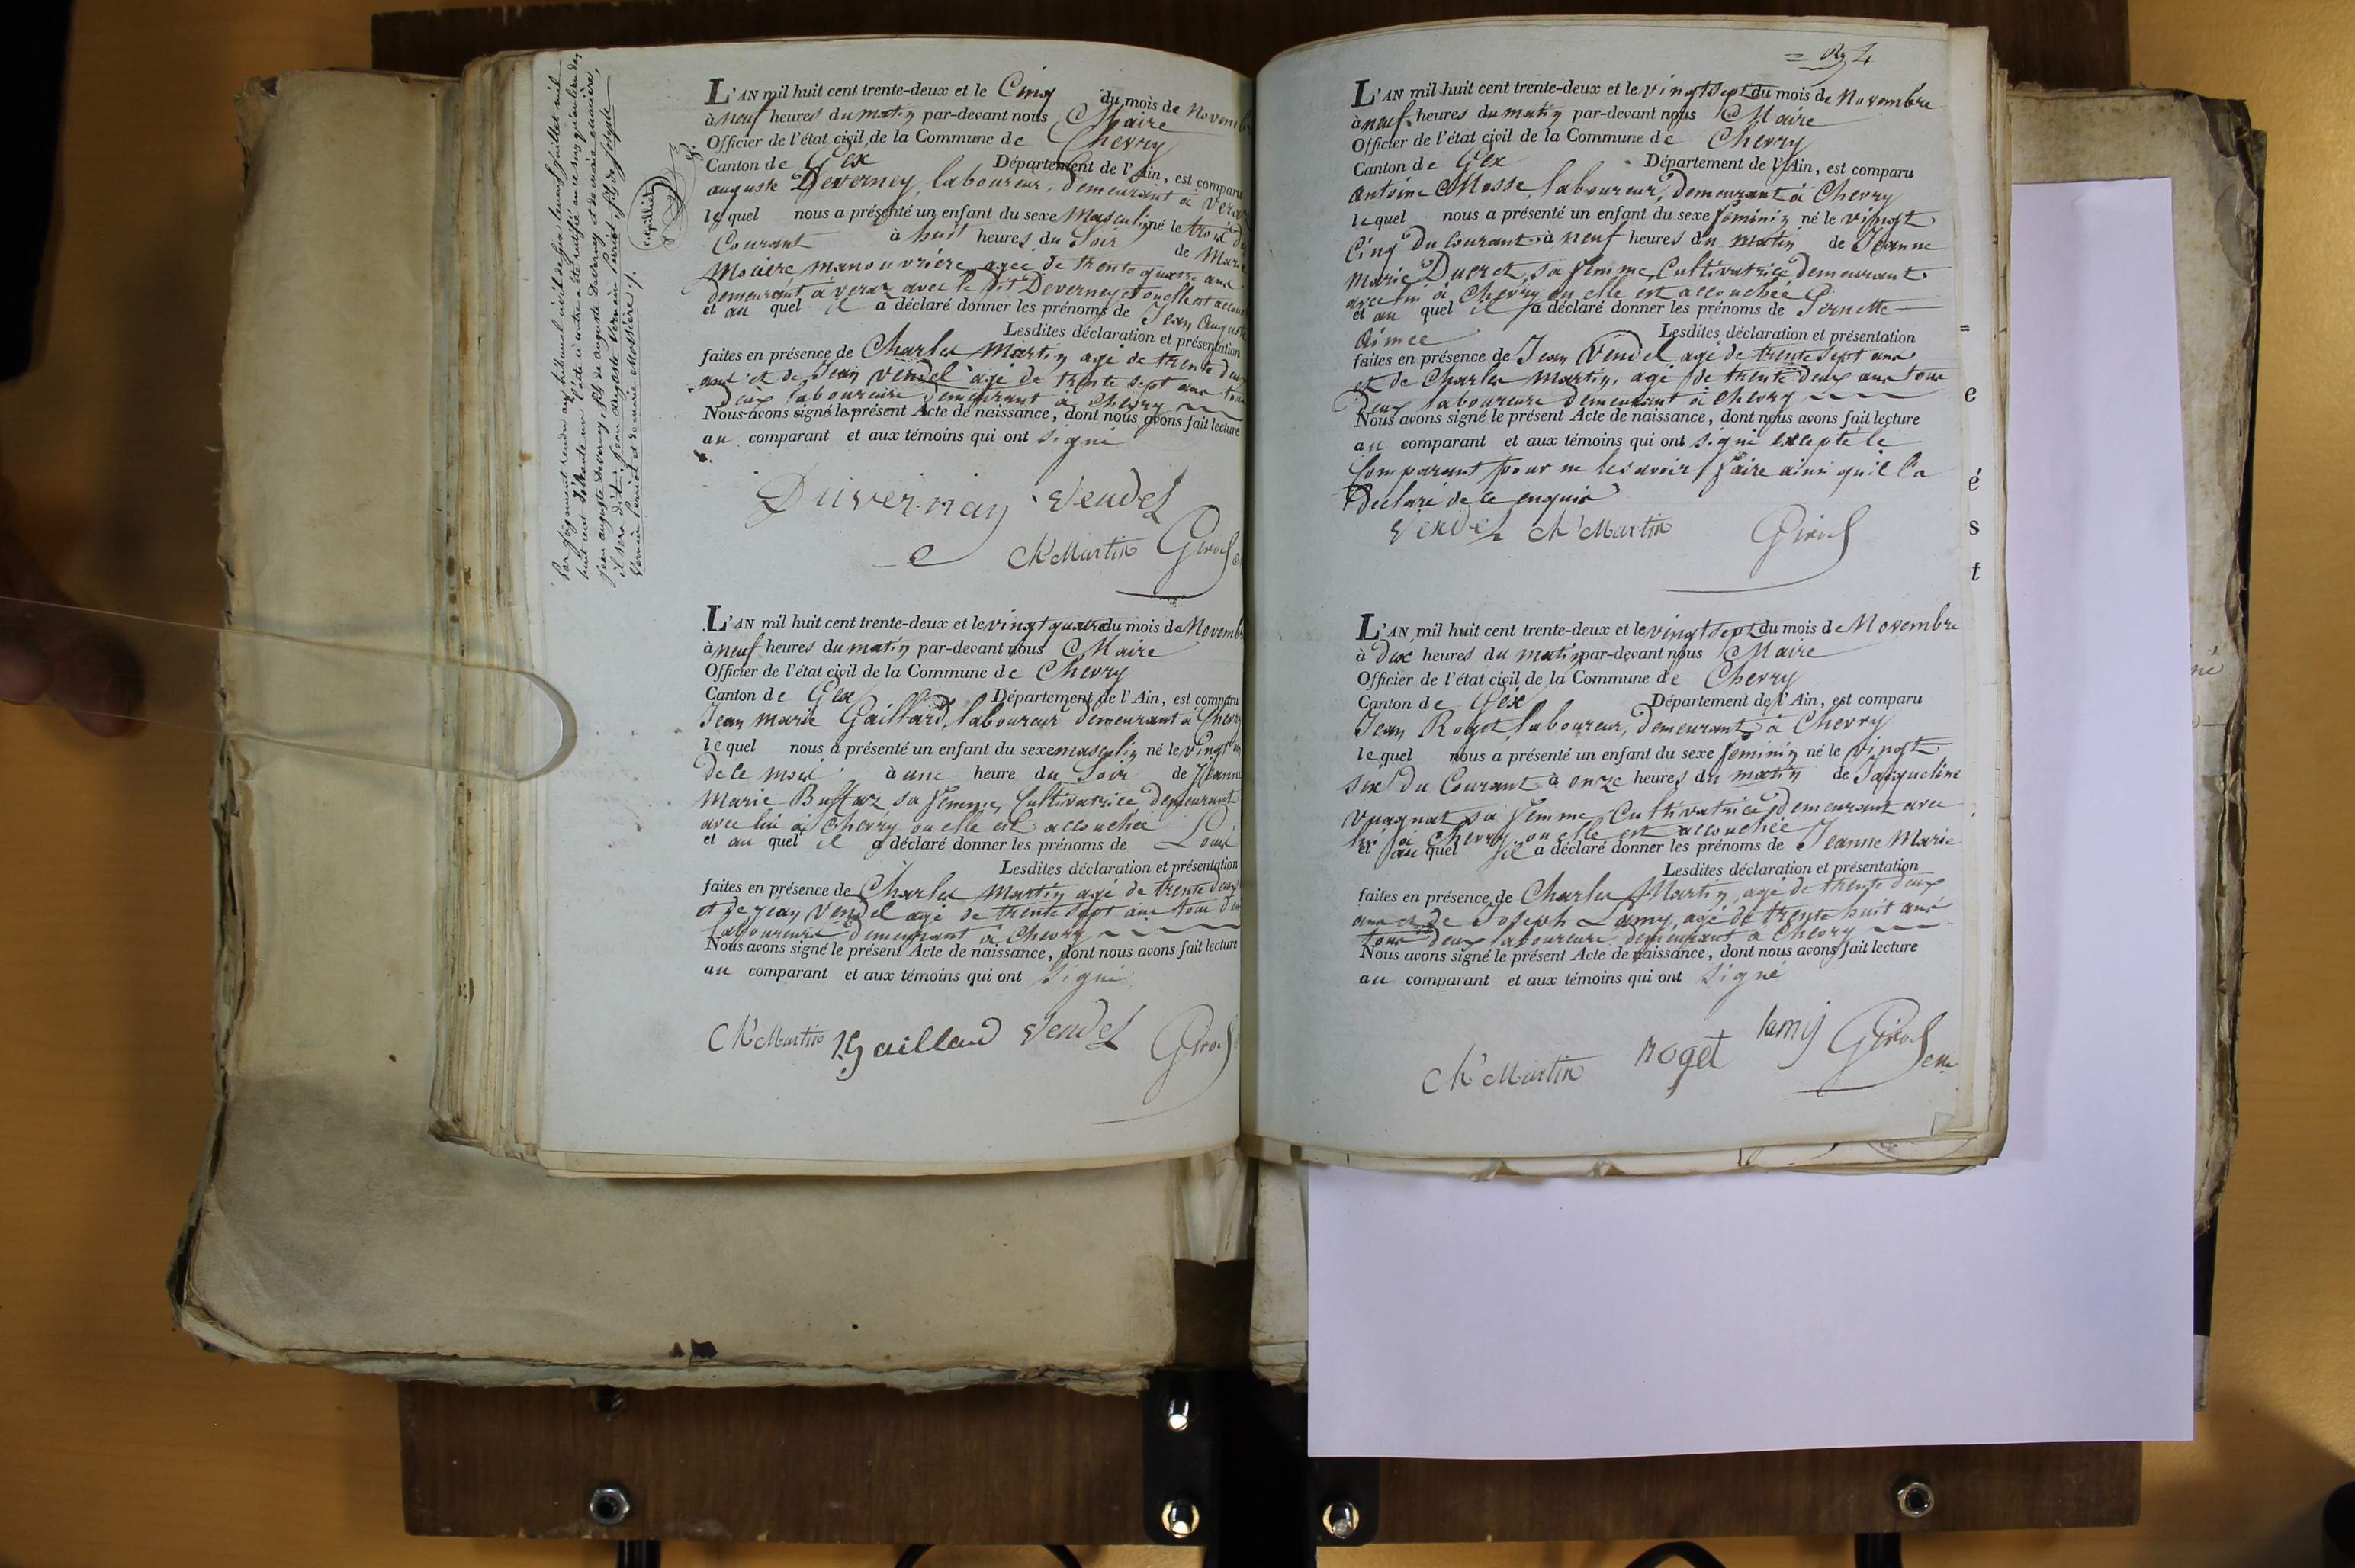 Par jugement rendu au tribunal civil de Gex le neuf juillet mil
huit cent soixante un l'acte ci contre a été rectifié en ce sens qu'au lieu de
jean auguste Duvernay, fils de auguste Duvernay et de marie mociere,
il sera dit: jean auguste Vernain Perriot, fils de Joseph
Vernain Perriot et de marie Mossière ./.
L'AN mil huit cent trente-deux et le Cinq du mois de Novembre
à neuf heures du matin par-devant nous Maire
Officier de l'état civil de la Commune de Chevry
Canton de Gex Département de l'Ain, est comparu
auguste Deverney, laboureur, demeurant à Veraz
lequel nous a présenté un enfant du sexe Masculin né le trois du
Courant à huit heures du Soir de Marie
Mociere manouvriere agee de trente quatre ans
demeurant à veraz avec le dit Deverney et ou elle est accou
et au quel il a déclaré donner les prénoms de Jean Auguste
Lesdites déclaration et présentation
faites en présence de Charles Martin agé de trente deux
ans et de Jean Vendel agé de trente sept ans tous
Deux laboureurs demeurant à Chevry
Nous avons signé le présent Acte de naissance, dont nous avons fait lecture
au comparant et aux témoins qui ont signé
Duvernay Vendel
Ch Martin Girod
L'AN mil huit cent trente-deux et le vingt quatre du mois de Novemb
à neuf heures du matin par-devant nous Maire
Officier de l'état civil de la Commune de Chevry
Canton de Gex Département de l'Ain, est comparu
Jean marie Gaillard, laboureur demeurant à Chevry
lequel nous a présenté un enfant du sexe masculin né le Vingt
de ce mois à une heure du Soir de Jeanne
Marie Buffaz sa femme, Cultivatrice demeurant
avec lui à Chevry ou elle est accouchée
et au quel il a déclaré donner les prénoms de Louis
Lesdites déclaration et présentation
faites en présence de Charles Martin agé de trente deux
et de Jean Vendel agé de trente sept ans tous deux
laboureurs demeurant à Chevry
Nous avons signé le présent Acte de naissance, dont nous avons fait lecture
au comparant et aux témoins qui ont signé
Ch Martin Gaillard Vendel Girod
L'AN mil huit cent trente-deux et le vingt sept du mois de Novembre
à neuf heures du matin par-devant nous Maire
Officier de l'état civil de la Commune de Chevry
Canton de Gex Département de l'Ain, est comparu
Antoine Mosse, laboureur, demeurant à Chevry
lequel nous a présenté un enfant du sexe féminin né le vingt
Cinq du Courant à neuf heures du matin de Jeanne
Marie Ducret, sa femme, Cultivatrice demeurant
avec lui à Chevry ou elle est accouchée
et au quel il a déclaré donner les prénoms de Pernette
Aimee
Lesdites déclaration et présentation
faites en présence de Jean Vendel agé de trente sept ans
et de Charles Martin, agé de trente deux ans tous
Deux laboureurs demeurant à Chevry
Nous avons signé le présent Acte de naissance, dont nous avons fait lecture
au comparant et aux témoins qui ont signé excepté le
Comparant pour ne le savoir faire ainsi qu'il l'a
Declaré de ce enquis
Vendel Ch Martin Girod
L'AN mil huit cent trente-deux et le vingt sept du mois de Novembre
à dix heures du matin par-devant nous Maire
Officier de l'état civil de la Commune de Chevry
Canton de Gex Département de l'Ain, est comparu
Jean Roget, laboureur, demeurant à Chevry
lequel nous a présenté un enfant du sexe féminin né le vingt
six du Courant à onze heures du matin de Jacqueline
Vuagnat sa femme Cultivatrice demeurant avec
lui à Chevry ou elle est accouchée
et au quel il a déclaré donner les prénoms de Jeanne Marie
Lesdites déclaration et présentation
faites en présence de Charles Martin, agé de trente deux
ans et de Joseph Lamy, agé de trente huit ans
tous deux laboureurs demeurant à Chevry
Nous avons signé le présent Acte de naissance, dont nous avons fait lecture
au comparant et aux témoins qui ont signé
Ch Martin Roget lamy Girod
e
é
s
t